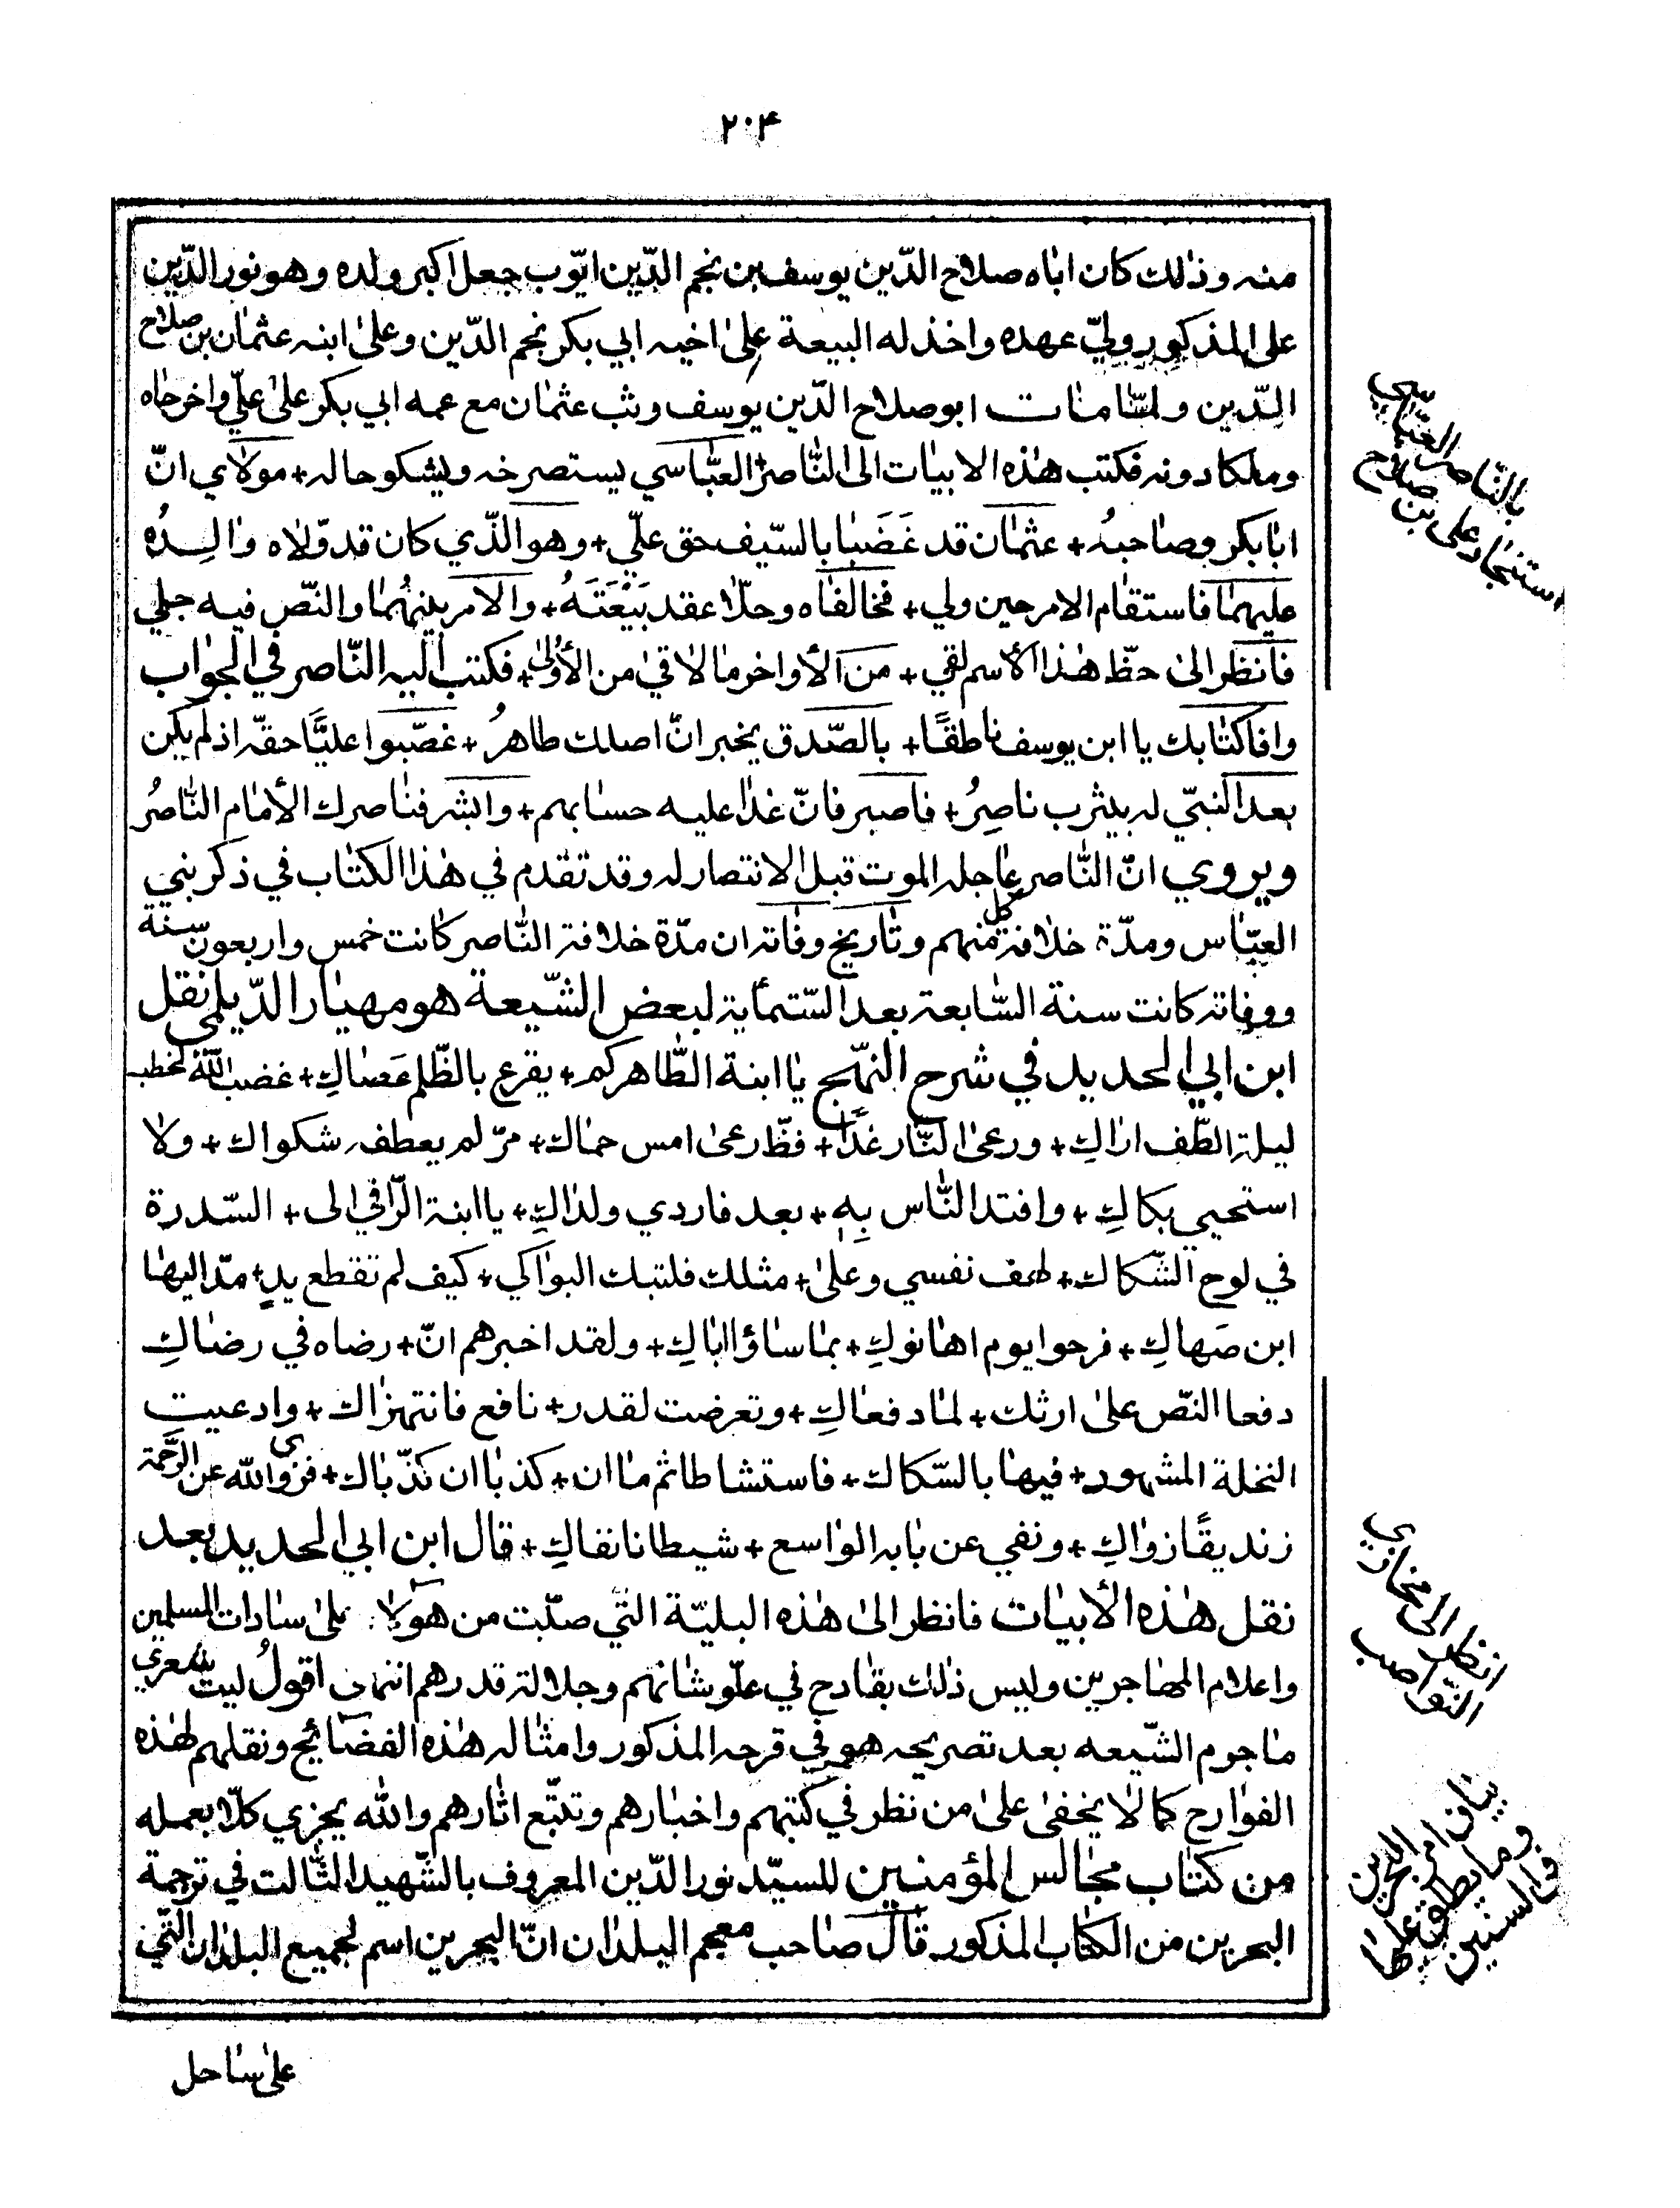 ٢٠٤
منه وذلك كان اباه صلاح الدّين يوسف بن نجم الدّين ايّوب جعل اكبر ولده وهو نور الدّين
على المذكور وليّ عهده واخذ له البيعة على اخيه ابي بكر نجم الدّين وعلى ابنه عثمان بن صلاح
الدّين ولمّا مات ابو صلاح الدّين يوسف وثب عثمان مع عمه ابي بكر على عليّ واخرجاه
وملكا دونه فكتب هذه الابيات الى النّاصر العبّاسي يستصرخه ويشكو حاله + مولاي انّ
ابا بكر وصاحبه + عثمان قد غَضَبا بالسّيف حق عليّ + وهو الذّي كان قد ولاه والِدُه
عليهما فاستقام الامر حين ولي + فخالفاه وحلّا عقد بَيْعَتَهُ + والامر بينهُما والنّص فيه جلي
فانظر الى حظّ هذا الاسم لقي + مَن الأواخر ما لاقى من الأُولى + فكتب اليه النّاصر في الجواب
وافا كتابك يا ابن يوسف ناطقًا + بالصّدق يخبر انّ اصلك طاهرُ + غصّبوا عليًّا حقّه اذ لم يكن
بعد النّبيّ له بيثرب ناصِرُ + فاصبر فانّ غدا عليه حسابهم + وابشر فناصرك الأمام النّاصُر
ويروي انّ النّاصر عاجله الموت قبل الانتصار له وقد تقدم في هذا الكتاب في ذكر بني
العبّاس ومدّة خلافة كل منهم وتاريخ وفاته ان مدّة خلافة النّاصر كانت خمس واربعون سنة
ووفاته كانت سنة السّابعة بعد السّتمأية لبعض الشّيعة هو مهيار الدّيلمي نقل
ابن ابي الحديد في شرح النّهج يا ابنة الطّاهر كم + يقرع بالظّلم عَصاكِ + غضب اللّه لخطب
ليلة الطّف اراكِ + ورعى النّار غدًا + فظّ رعى امس حماك + مرّ لم يعطف شكواك + ولا
استحيي بكاكِ + وافتد النّاس بِهِ + بعد فاردي ولداكِ + يا ابنة الرّاقي الى + السّدرة
في لوح السّكاك + لهف نفسي وعلى + مثلك فلتبك البواكي + كيف لم تقطع يدٍ + مدّ اليها
ابن صَهاكِ + فرحوا يوم اهانوكِ + بما ساؤا اباكِ + ولقد اخبرهم انّ + رضاه في رضاكِ
دفعا النّص على ارثك + لما دفعاكِ + وتعرضت لقدر + نافع فانتهزاك + وادعيت
النخلة المشهود + فيها بالسّكاك + فاستشاطا ثم ما ان + كذبا ان كذّباك + فزوى الله عن الرَّحمة
زنديقًا زواكِ + ونفي عن بابه الواسع + شيطانا نفاكِ + قال ابن ابي الحديد بعد
نقل هذه الأبيات فانظر الى هذه البليّة التّي صبّت من هؤلاء على سادات المسلمين
واعلام المهاجرين وليس ذلك بقادح في علّو شانهم وجلالة قدرهم انتهى اقولُ ليت شعري
ما جرم الشّيعه بعد تصريحه هو في قرحه المذكور وامثاله هذه الفضائيح ونقلهم لهذه
الفوارح كما لا يخفى على من نظر في كتبهم واخبارهم وتتبّع اثارهم والله يجزي كلّا بعمله
من كتاب مجالس المؤمنين للسيّد نور الدّين المعروف بالشّهيد الثّالث في ترجمة
البحرين من الكتاب المذكور قال صاحب معجم البلدان انّ البحرين اسم لجميع البلدان التّي
على ساحل
استنجاد على بن صلاح
بالنّاصر العبّاسي
انظر الى مخازي
النّواصب
بيان امر البحرين
وما يطلق عليها
في السنين